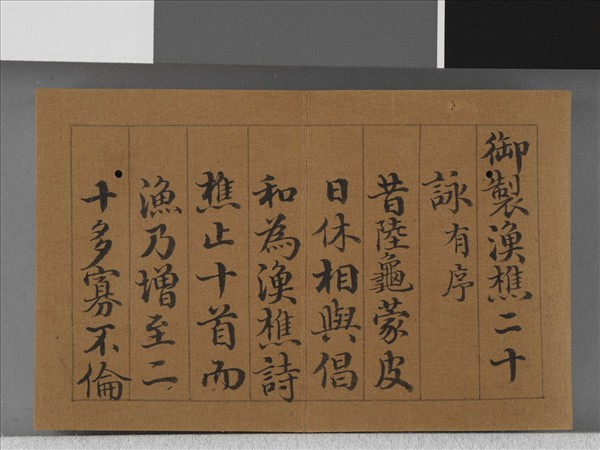 御製漁樵二十
詠有序
昔陸龜蒙皮
日休相與倡
和為漁樵詩
樵止十首而
漁乃增至二
十多寡不倫